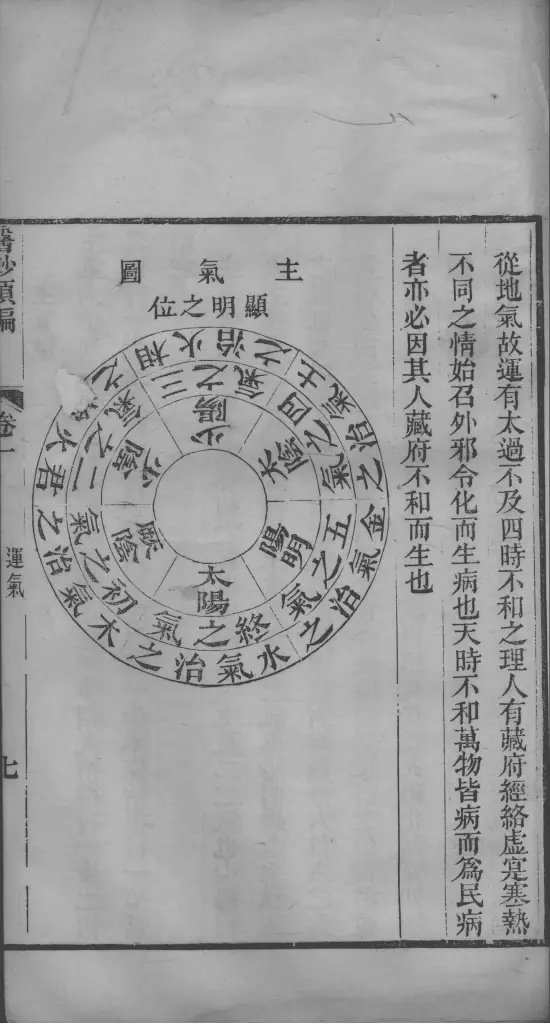 從地氣故運有太過不及四時不和之理人有藏府經絡虛寔寒熱
不同之情始召外邪令化而生病也天時不和萬物皆病而爲民病
者亦必因其人藏府不和而生也
主氣圖
顯明之位
木氣治之
初之氣
厥陰
君火治之
二之氣
少陰
相火治之
三之氣
少陽
土氣治之
四之氣
太陰
金氣治之
五之氣
陽明
水氣治之
終之氣
太陽
醫鈔類編
卷一
運氣
七